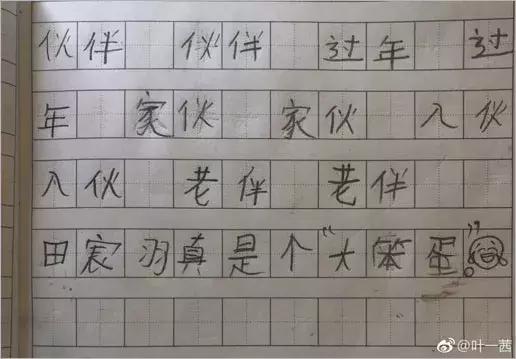 伙伴 伙伴 过年 过
年 家伙 家伙 入伙
入伙 老伴 老伴
田宸羽真是个“大笨蛋”
@叶一茜